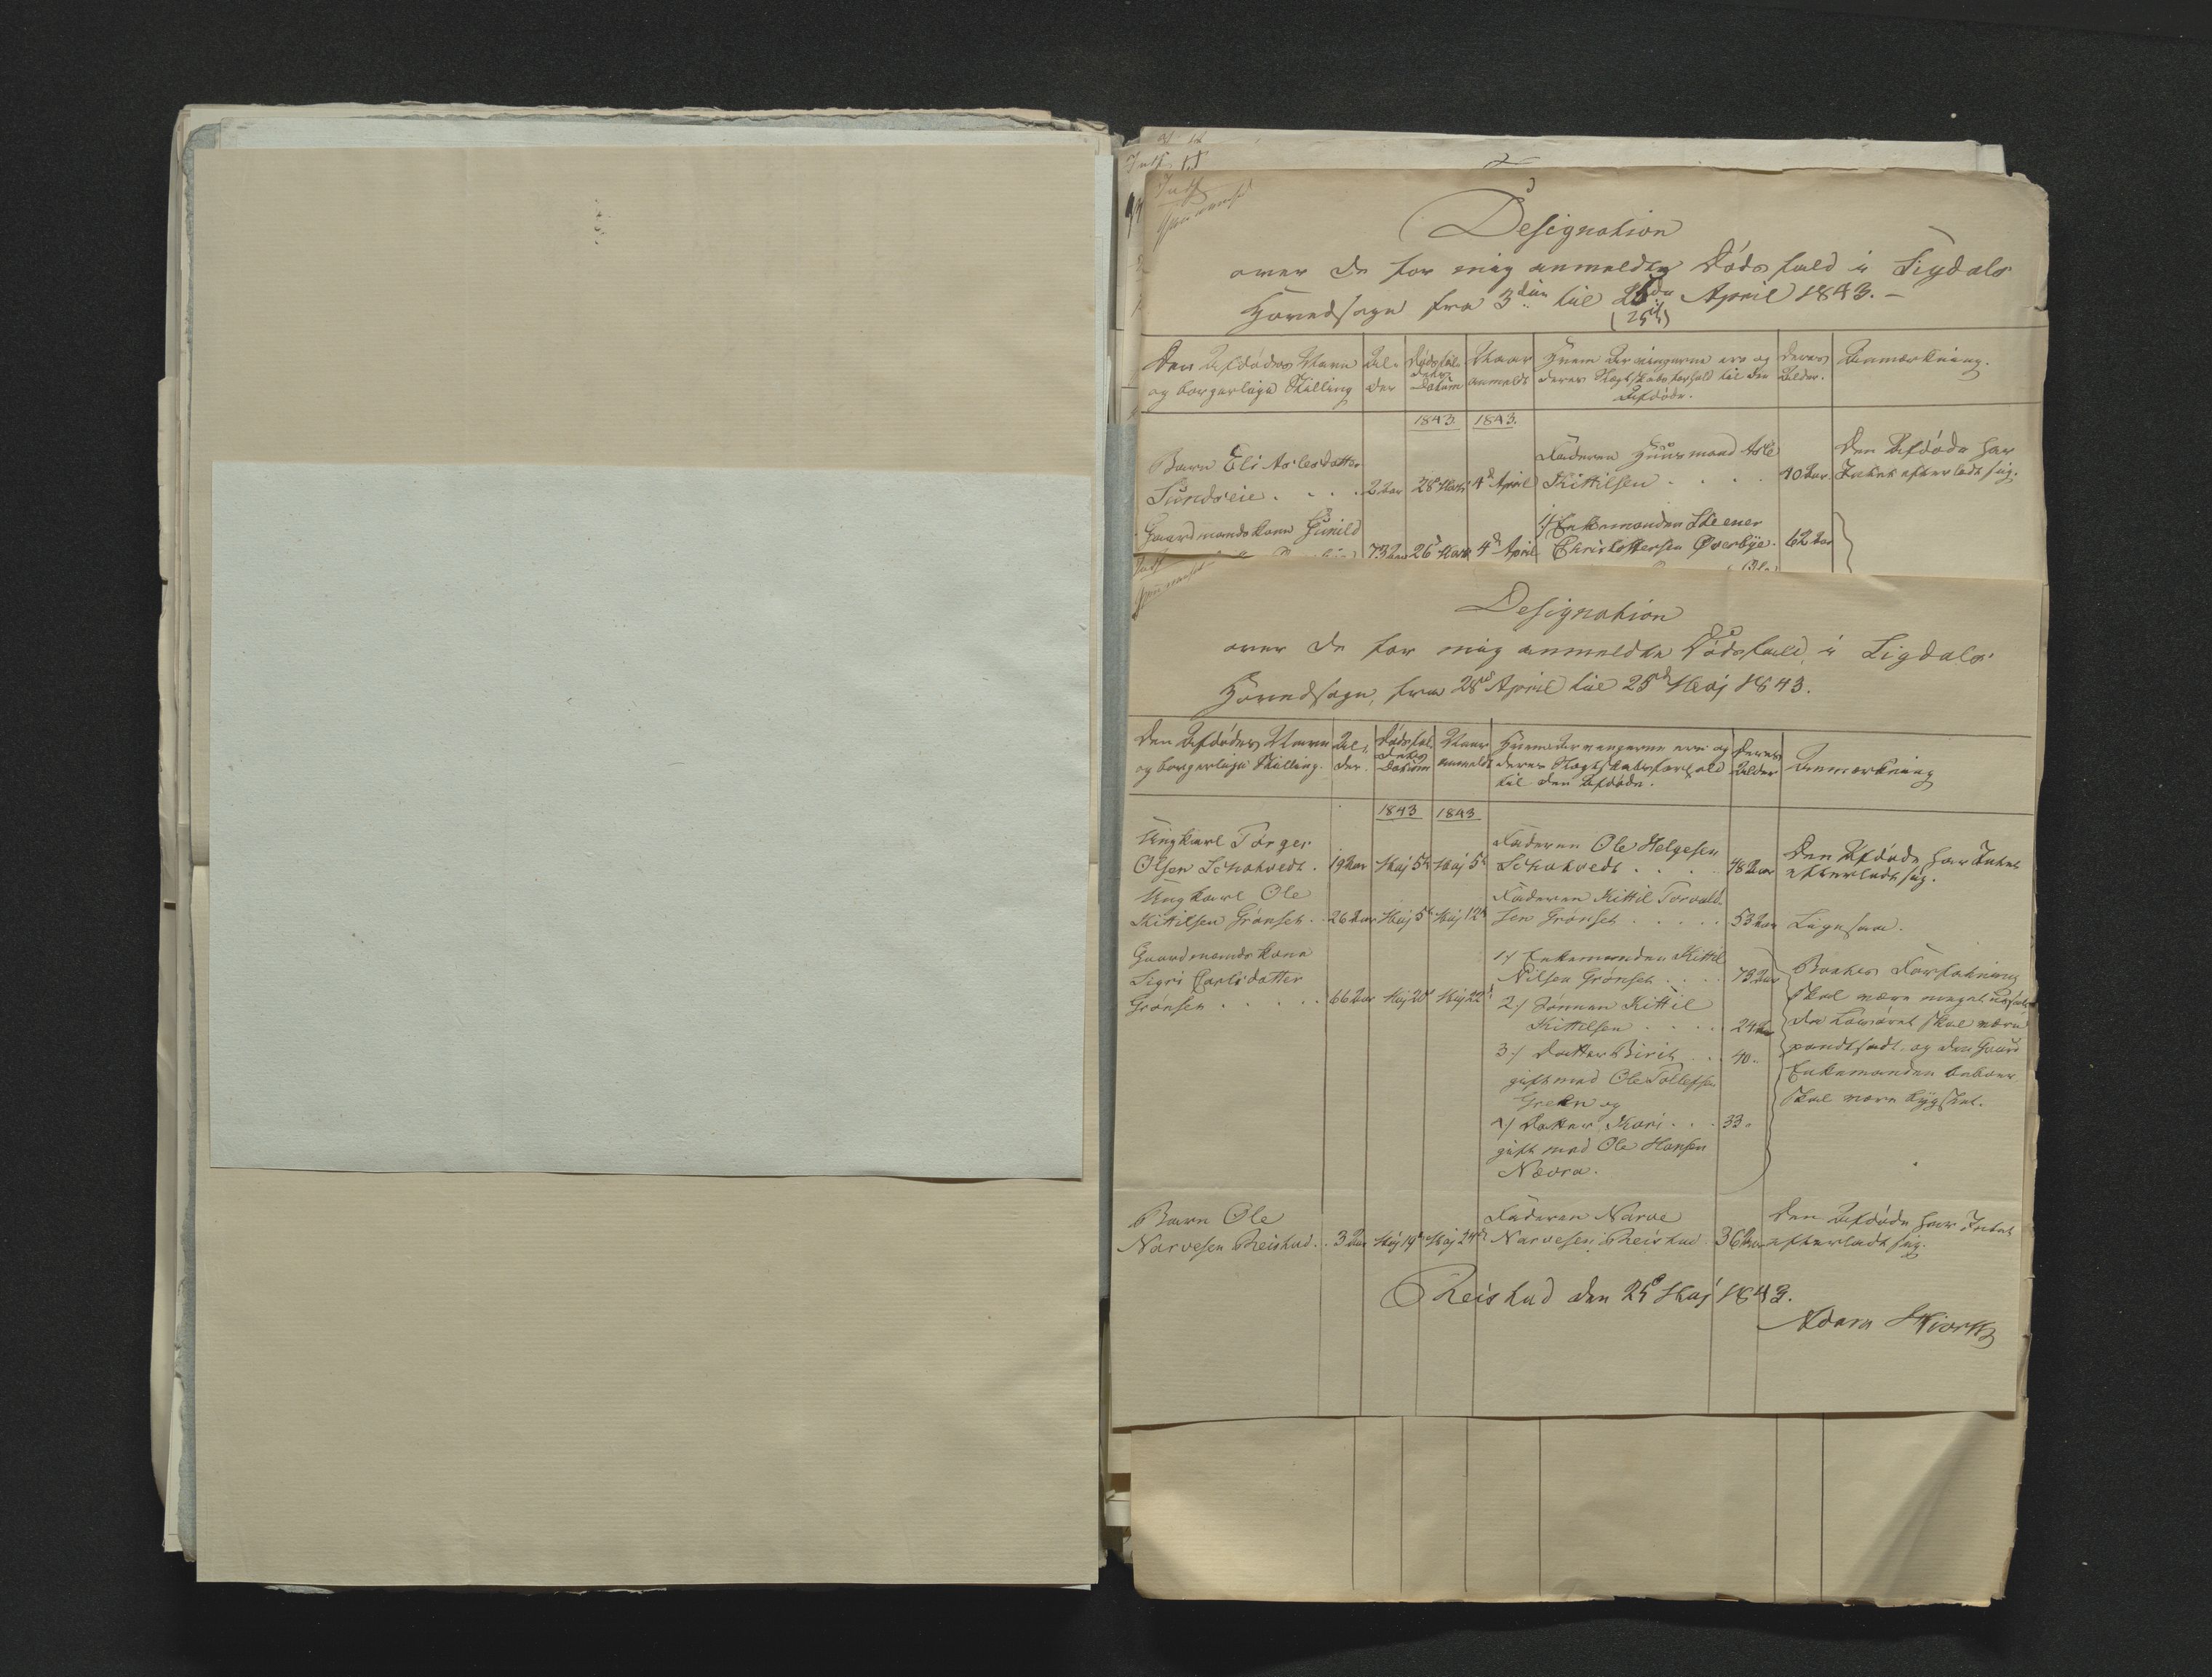 Designation
over de for mig anmeldte Dødsfald i Sigdals
Hovedsogn fra 3die til April 1843. –
(25d)
Den Afdødes Navn Al- Dødsfal- Naar Hvem Arvingerne ere og Deres Anmærkning.
og borgerlige Stilling der dets Datum anmeldt deres Slægtskabsforhold til den Alder.
Afdøde.
1843. 1843.
Barn Eli Aslesdatter Faderen Huusmand Asle Den Afdøde har
Sundseie . . . . 2 Aar 28d Marts 4d April Kittilsen . . . . 40 Aar. Intet efterladt sig.
Gaardmandskone Gunild 1/ Enkemanden Steener
73 Aar 26d Marts 4d April Christoffersen Øverbye. 62 Aar
Designation
over de for mig anmeldte Dødsfald i Sigdals
Hovedsogn, fra 28d April til 25d Maj 1843.
Den Afdødes Navn Al- Dødsfal- Naar Hvem Arvingerne ere og Deres Anmærkning
og borgerlige Stilling. der. dets Datum anmeldt deres Slægtskabsforhold Alder
til den Afdøde.
1843 1843
Ungkarl Torger Faderen Ole Helgesen Den Afdøde har Intet
Olsen . 19 Aar Maj 5d Maj 5d . . . . 48 Aar efterladt sig.
Ungkarl Ole Faderen Kittil Torvald-
Kittilsen Grønset . . 26 Aar Maj 5d Maj 12d sen Grønset . . . . . 53 Aar Ligesaa.
Gaardmandskone 1/ Enkemanden Kittil
Sigri Carlsdatter Nilsen Grønset . . . . 73 Aar Boets Forfatning
Grønset . . . . . 66 Aar Maj 20d Maj 22d 2/ Sønnen Kittil skal være meget
Kittelsen . . . . . 24 Aar da Løsøret skal være
3/ Datter Birit . . . 40 " pandtsadt, og den Gaard
gift med Ole Tollefsen Enkemanden beboer,
Grehn og skal være bygslet.
4/ Datter Kari . . . 33 "
gift med Ole Hansen
Nævra.
Barn Ole Faderen Narve Den Afdøde har Intet
Narvesen Reistad . . 3 Aar Maj 19d Maj 24d Narvesen Reistad . 36 Aar efterladt sig.
Reistad den 25d Maj 1843.
Adam Hiorth